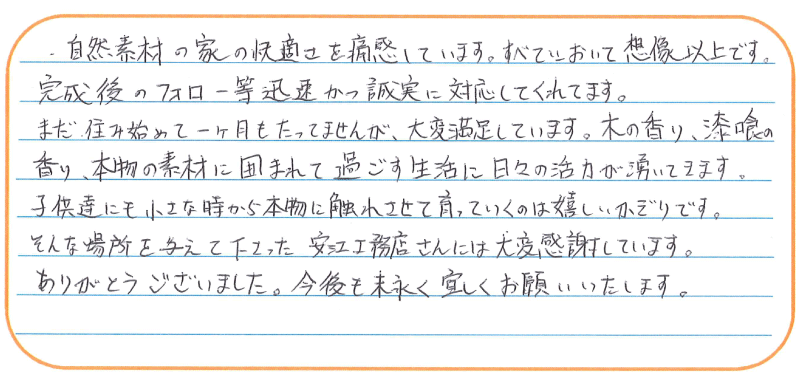 ・自然素材の家の快適さを痛感しています。すべてにおいて想像以上です。
完成後のフォロー等迅速かつ誠実に対応してくれてます。
まだ住み始めて一ヶ月もたってませんが、大変満足しています。木の香り、漆喰の
香り、本物の素材に囲まれて過ごす生活に日々の活力が湧いてきます。
子供達にも小さな時から本物に触れさせて育っていくのは嬉しいかぎりです。
そんな場所を与えて下さった安江工務店さんには大変感謝しています。
ありがとうございました。今後も末永く宜しくお願いいたします。